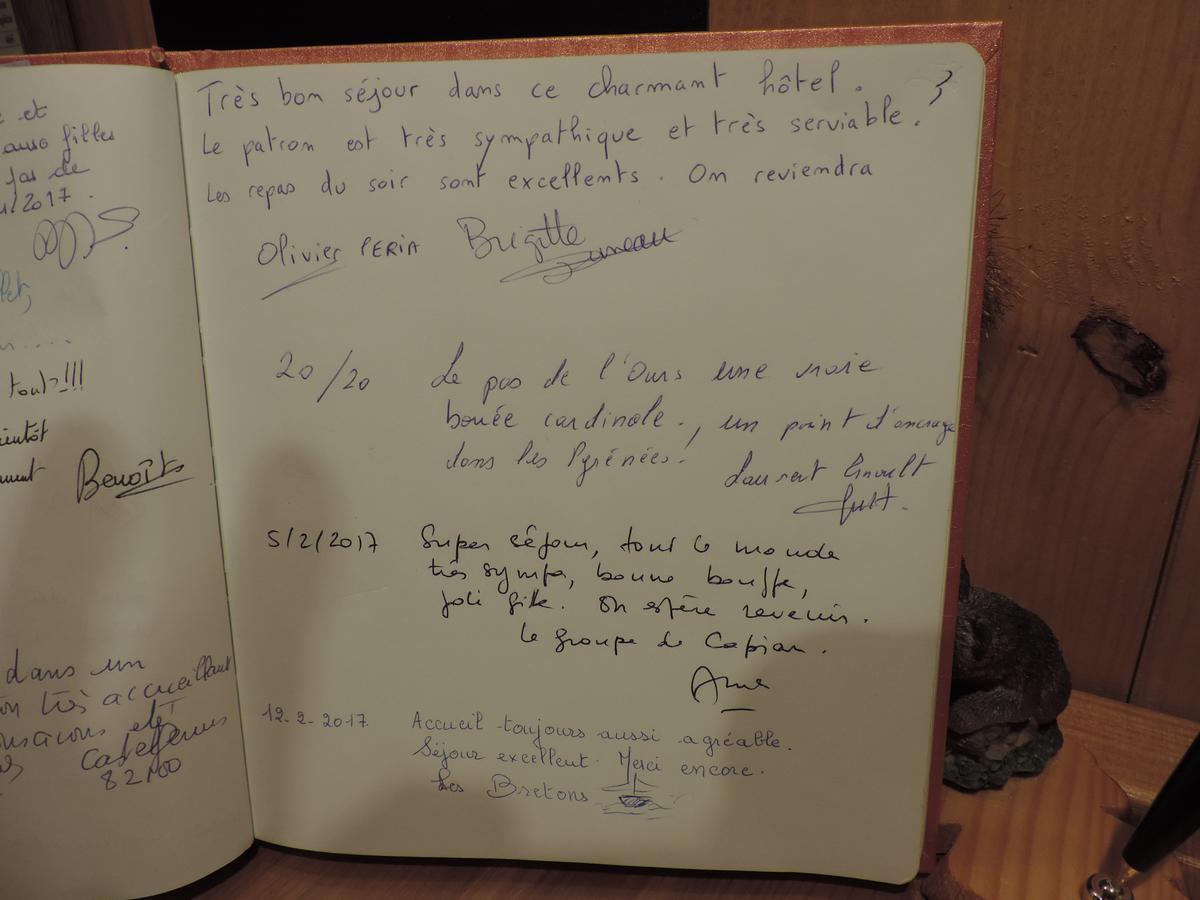 et
filles
de
/2017.
tout !!!
Benoîts
dans un
très accueillant
82100
3
Très bon séjour dans ce charmant hôtel.
Le patron est très sympathique et très serviable.
Les repas du soir sont excellents. On reviendra
Olivier PERIA Brigitte
20/20
Le pas de l'Ours une vraie
bouée cardinale., un point d'ancrage
dans les Pyrénées.
Laurent
5/2/2017
Super séjour, tout le monde
très sympa, bonne bouffe,
joli gîte. On espère revenir.
le groupe de Capian.
12-2-2017
Accueil toujours aussi agréable.
Séjour excellent. Merci encore.
Les Bretons